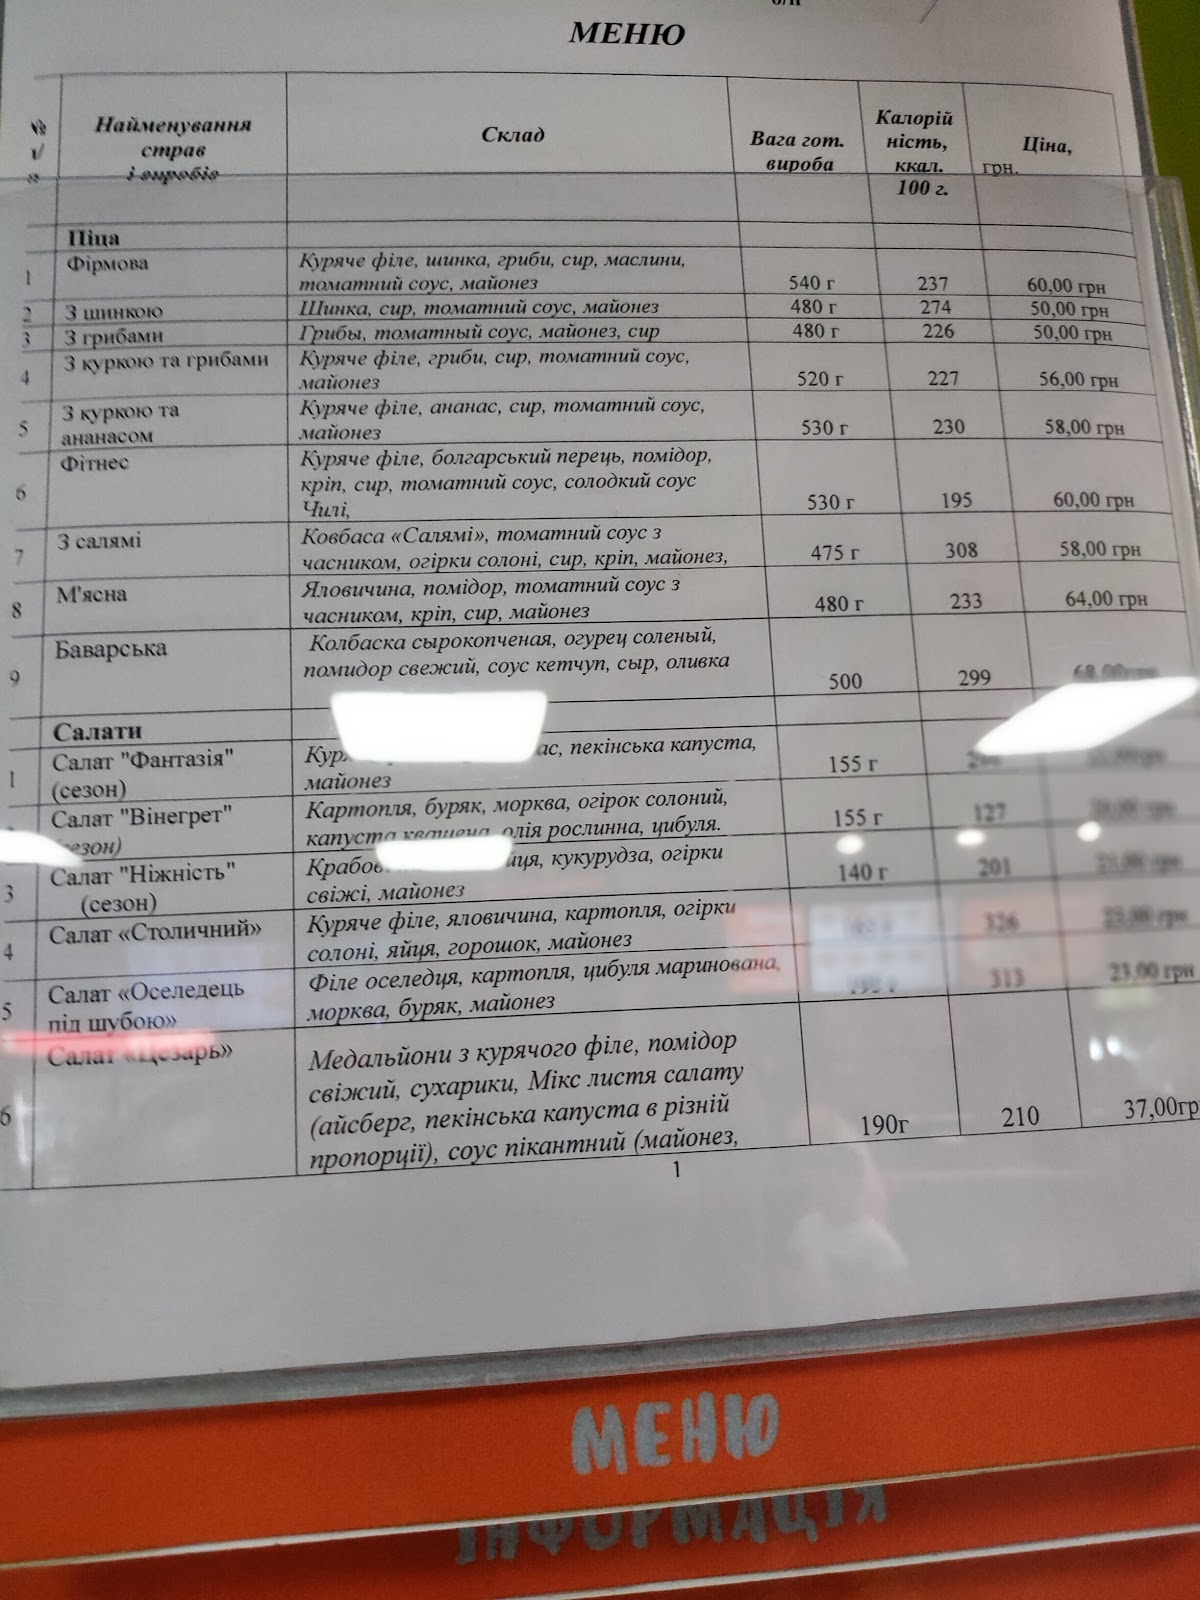 МЕНЮ
Найменування страв і виробів
Склад
Вага гот. вироба
Калорій ність, ккал. 100 г.
Ціна, грн.
Піца
1 Фірмова Куряче філе, шинка, гриби, сир, маслини,
томатний соус, майонез 540 г 237 60,00 грн
2 З шинкою Шинка, сир, томатний соус, майонез 480 г 274 50,00 грн
3 З грибами Грибы, томатный соус, майонез, сир 480 г 226 50,00 грн
4 З куркою та грибами Куряче філе, гриби, сир, томатний соус,
майонез 520 г 227 56,00 грн
5 З куркою та Куряче філе, ананас, сир, томатний соус,
ананасом майонез 530 г 230 58,00 грн
Фітнес Куряче філе, болгарський перець, помідор,
6 кріп, сир, томатний соус, солодкий соус 530 г 195 60,00 грн
Чилі,
З салямі Ковбаса «Салямі», томатний соус з
7 часником, огірки солоні, сир, кріп, майонез, 475 г 308 58,00 грн
М'ясна Яловичина, помідор, томатний соус з
8 часником, кріп, сир, майонез 480 г 233 64,00 грн
Баварська Колбаска сырокопченая, огурец соленый,
9 помидор свежий, соус кетчуп, сыр, оливка 500 299 68,00грн
Салати
1 Салат "Фантазія" пекінська капуста,
(сезон) майонез 155 г
Салат "Вінегрет" Картопля, буряк, морква, огірок солоний,
капуста квашена, олія рослинна, цибуля. 155 г 127
3 Салат "Ніжність" кукурудза, огірки
(сезон) свіжі, майонез 140 г 201
4 Салат «Столичний» Куряче філе, яловичина, картопля, огірки
солоні, яйця, горошок, майонез 326 23,00 грн
5 Салат «Оселедець Філе оселедця, картопля, цибуля маринована,
під шубою» морква, буряк, майонез 313 23,00 грн
Салат «Цезарь» Медальйони з курячого філе, помідор
свіжий, сухарики, Мікс листя салату
6 (айсберг, пекінська капуста в різній 190г 210 37,00гр
пропорції), соус пікантний (майонез,
1
МЕНЮ
ІНФОРМАЦІЯ